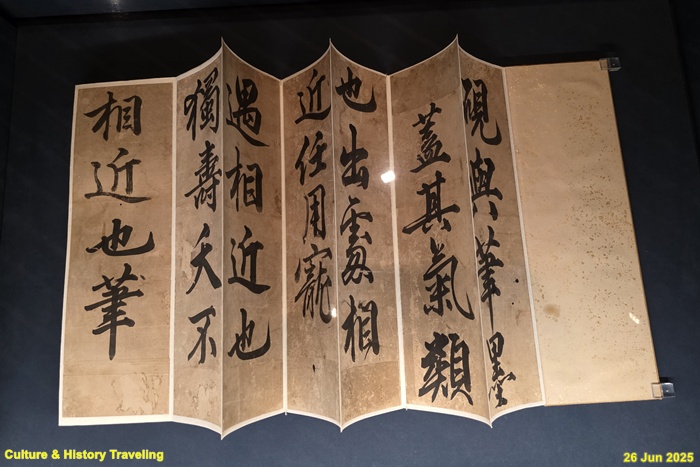 硯與筆墨
蓋其氣類
也出處相
近任用寵
遇相近也
獨壽夭不
相近也筆
Culture & History Traveling
26 Jun 2025